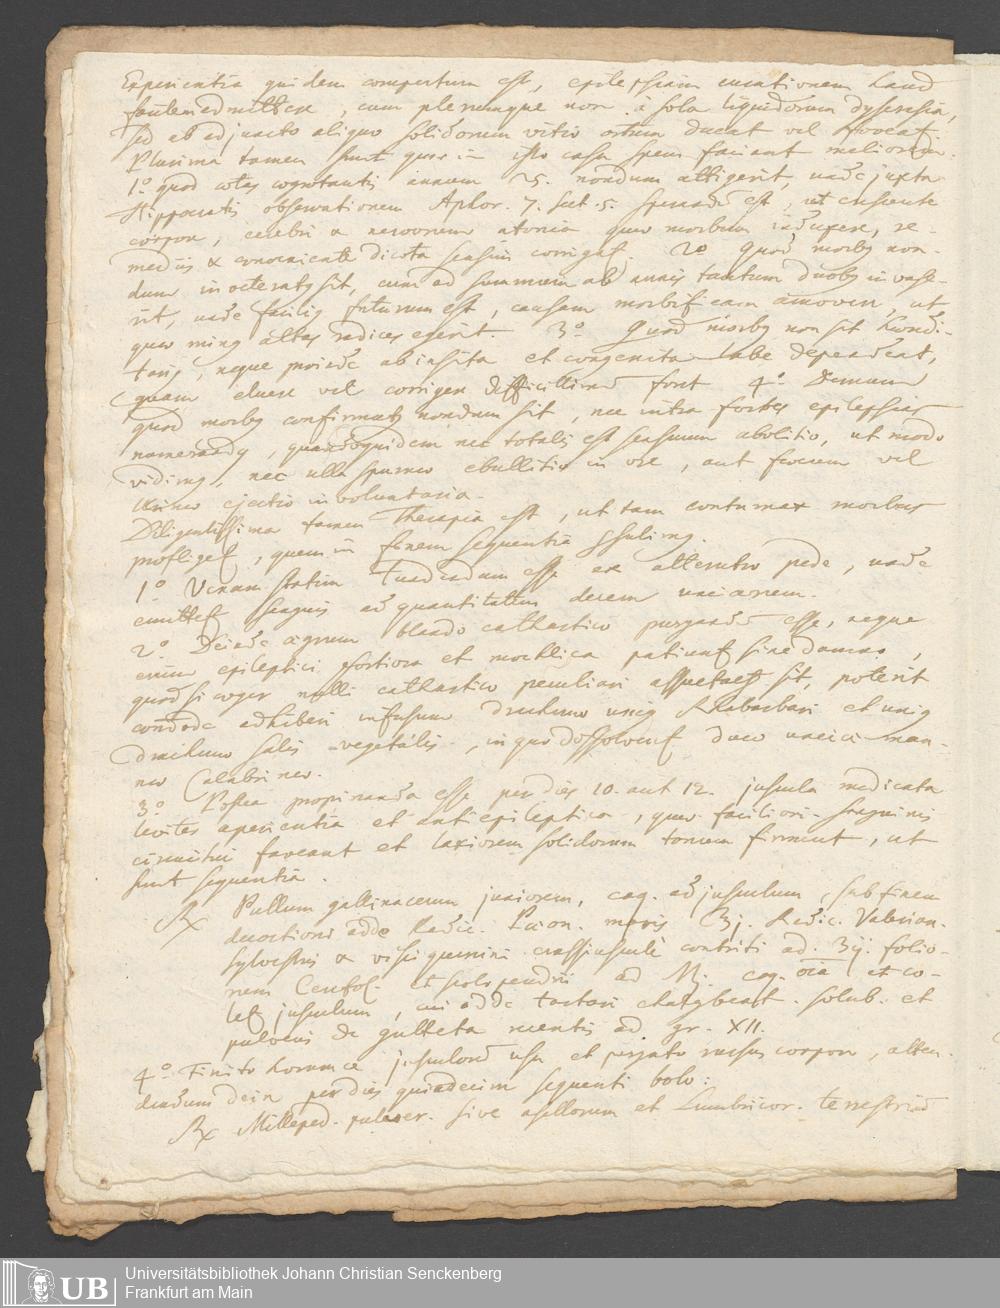 Experientia quidem compertum est, epilepsiam curationem haud
facilem admittere, cum plerumque non a sola liquidorum dyscrasia,
sed ab adjuncto aliquo solidorum vitio ortum ducat vel
Plurima tamen sunt quae in isto casu spem faciant meliorem.
1º quod aetas aegrotantis annum 25. nondum attigerit, unde juxta
Hippocratis observationem Aphor. 7. sect. 5. sperandū est, ut crescente
corpore, cerebri & nervorum atonia quae morbum induxere, re-
mediis & convenienti diaeta sensim corrigat. 2º Quod morbus non-
dum inveteratus sit, cum ad summum ab annis tantum duobus invase-
rit, unde facilius futurum est, causam morbificam amovere, ut
quae minus altas radices egerit. 3º Quod morbus non sit haeredi-
tarius, neque proinde ab insita et congenita labe dependeat,
quam eluere vel corrigere difficillimū foret 4º Demum
quod morbus confirmatus nondum sit, nec intra fortes epilepsias
numerandus, quandoquidem nec totalis est sensuum abolitio, ut modo
vidimus, nec ulla spumae ebullitio in ore, aut faecum vel
urinae ejectio involuntaria.
Diligentissima tamen Therapia est, ut tam contumax morbus
profliget, quem in finem sequentia
1º Venam statim tundendam esse ex alterutro pede, unde
emittet sanguis ad quantitatem decem unciarum.
2º Deinde aegrum blando cathartico purgandū esse, neque
enim epileptici fortiora et mochlica patiunt sine damno,
quodsi aeger nulli cathartico peculiari assuetus sit, poterit
adhiberi infusum drachmae unius Rhabarbari et unius
drachmae salis vegetalis, in quo dissolvent duae unciae man-
nae Calabrinae.
3º Postea propinanda esse per dies 10. aut 12. juscula medicata
leviter aperientia et antiepileptica, quae faciliori sanguinis
circuitui faveant et laxiorem solidorum tonum firment, ut
sunt sequentia.
℞ Pullum gallinaceum juniorem, coq. ad jusculum, sub finem
decoctionis adde Radic. Paeon. maris ℥j. Radic. Valerian.
sylvestris & visci quernini crassiuscule contriti ad. ʒij. folio-
rum Ceterac. et scolopendrii ad M. coq. oīa et co-
let jusculum, cui adde tartari chalybeat. solub. et
pulveris de gutteta recentis ad gr. XII.
4º Finito horumce jusculorū usu et purgato rursus corpore, uten-
dum dein per dies quindecim sequenti bolo:
℞ Milleped. pulver. sive asellorum et Lumbricor. terrestriū
Universitätsbibliothek Johann Christian Senckenberg
Frankfurt am Main
UB